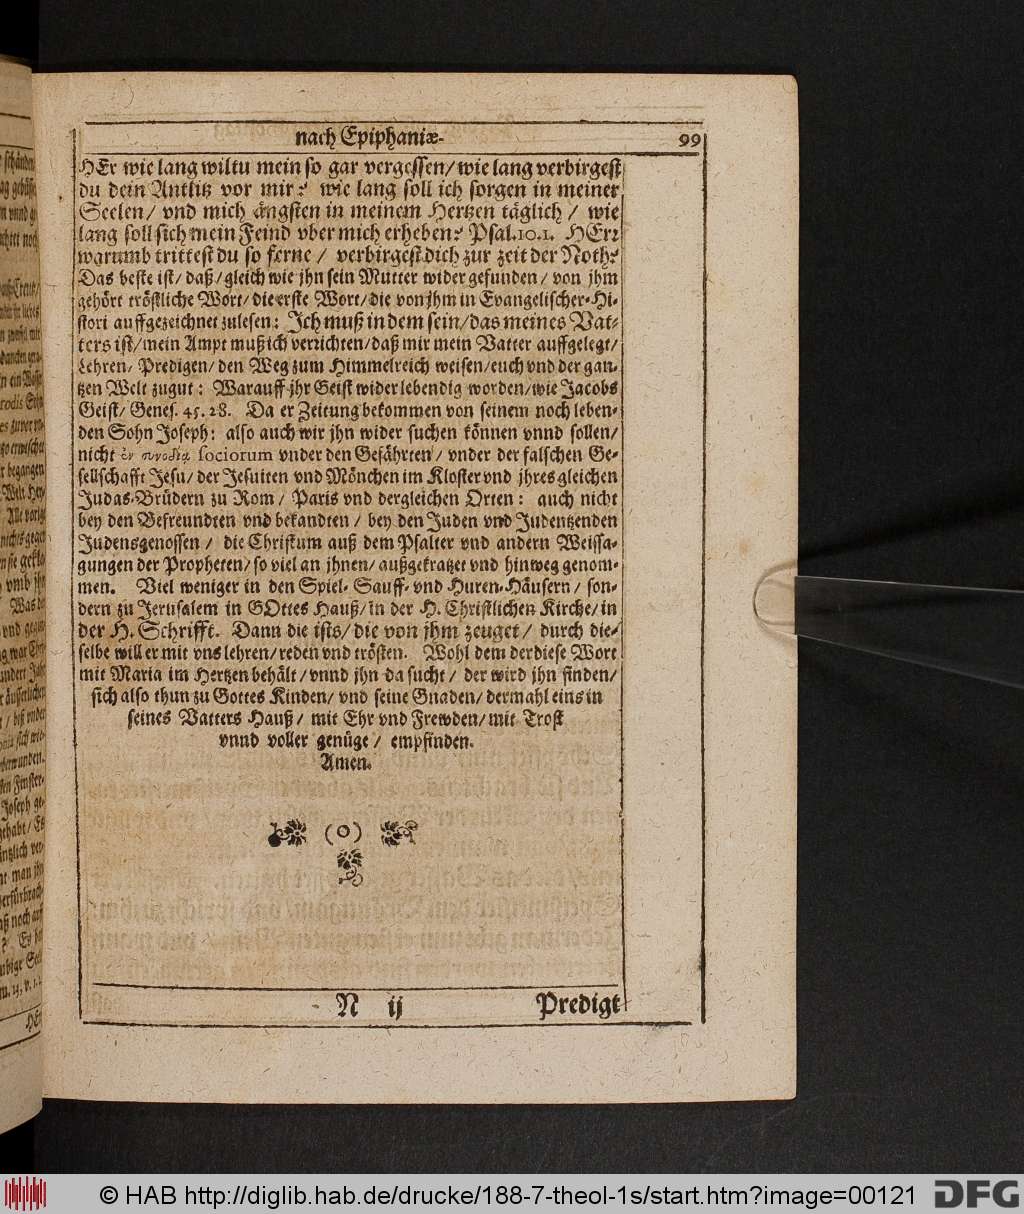 nach Epiphaniæ. 99
HErr wie lang wiltu mein so gar vergessen/ wie lang verbirgest
du dein Antlitz vor mir? wie lang soll ich sorgen in meiner
Seelen/ vnd mich ängsten in meinem Hertzen täglich/ wie
lang soll sich mein Feind vber mich erheben? Psal.10.1. HErr
warumb trittest du so ferne/ verbirgest dich zur zeit der Noth?
Das beste ist/ daß/ gleich wie jhn sein Mutter wider gefunden/ von jhm
gehört tröstliche Wort/ die erste Wort/ die von jhm in Evangelischer Hi-
stori auffgezeichnet zulesen: Ich muß in dem sein/ das meines Vat-
ters ist/ mein Ampt muß ich verrichten/ daß mir mein Vatter auffgelegt/
Lehren/ Predigen/ den Weg zum Himmelreich weisen/ euch vnd der gan-
tzen Welt zugut: Warauff jhr Geist wider lebendig worden/ wie Jacobs
Geist/ Genes. 45. 28. Da er Zeitung bekommen von seinem noch leben-
den Sohn Joseph: also auch wir jhn wider suchen können vnnd sollen/
nicht ἐν συνοδίᾳ sociorum vnder den Gefährten/ vnder der falschen Ge-
sellschafft Jesu/ der Jesuiten vnd Mönchen im Kloster vnd jhres gleichen
Judas-Brüdern zu Rom/ Paris vnd dergleichen Orten: auch nicht
bey den Befreundten vnd bekandten/ bey den Juden vnd Judentzenden
Judensgenossen/ die Christum auß dem Psalter vnd andern Weissa-
gungen der Propheten/ so viel an jhnen/ außgekratzet vnd hinweg genom-
men. Viel weniger in den Spiel- Sauff- vnd Huren-Häusern/ son-
dern zu Jerusalem in GOttes Hauß/ in der H. Christlichen Kirche/ in
der H. Schrifft. Dann die ists/ die von jhm zeuget/ durch die-
selbe will er mit vns lehren/ reden vnd trösten. Wohl dem der diese Wort
mit Maria im Hertzen behält/ vnnd jhn da sucht/ der wird jhn finden/
sich also thun zu Gottes Kinden/ vnd seine Gnaden/ dermahl eins in
seines Vatters Hauß/ mit Ehr vnd Frewden/ mit Trost
vnnd voller genüge/ empfinden.
Amen.
(o)
N ij Predigt
© HAB http://diglib.hab.de/drucke/188-7-theol-1s/start.htm?image=00121 DFG